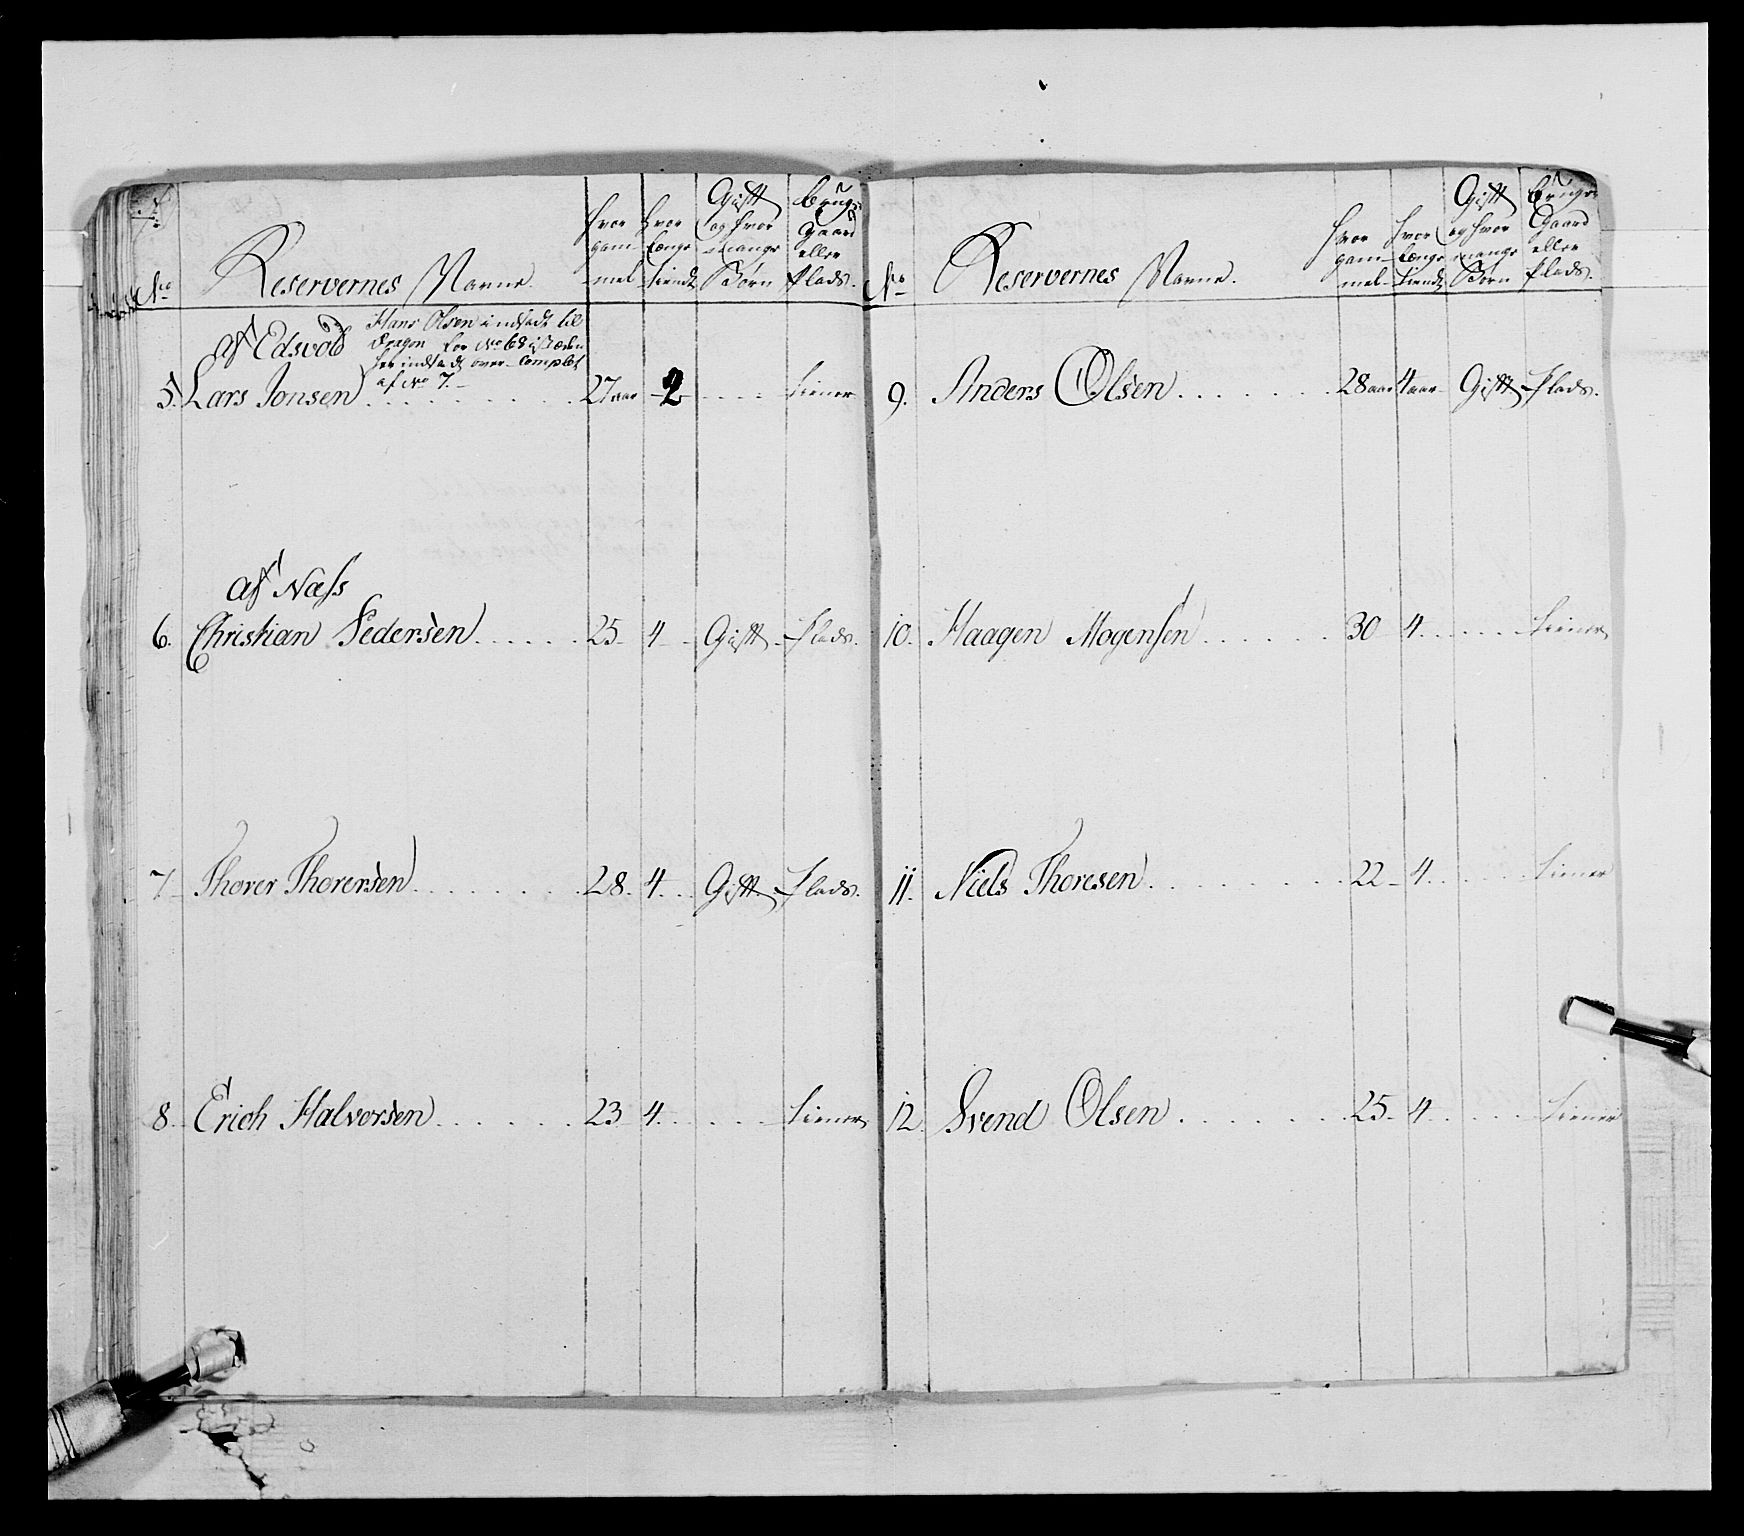 No Reservernes Navne. hvor gammel hvor længe tiendt Gift og hvor mange Børn brug. Gaard eller Plads.
af Edsvold
Hans Olsen indsadt til
Dragon for No 68 i stæden
her indsadt over complet
af No 7.
5. Lars Jonsen 27 aar 2 tiener
af Næss
6. Christian Pedersen 25 4 Gift Plads.
7 Thorer Thorersen 28. 4 Gift Plads.
8 Erich Halvorsen 23 4 tiener
No Reservernes Navne. hvor gammel hvor længe tiendt Gift og hvor mange Børn bruger Gaard eller Plads.
9. Anders Olsen 28 aar 4 aar Gift Plads.
10. Haagen Mogensen 30 4 tiener
11. Niels Thoresen 22 4 tiener
12. Svend Olsen 25 4 tiener